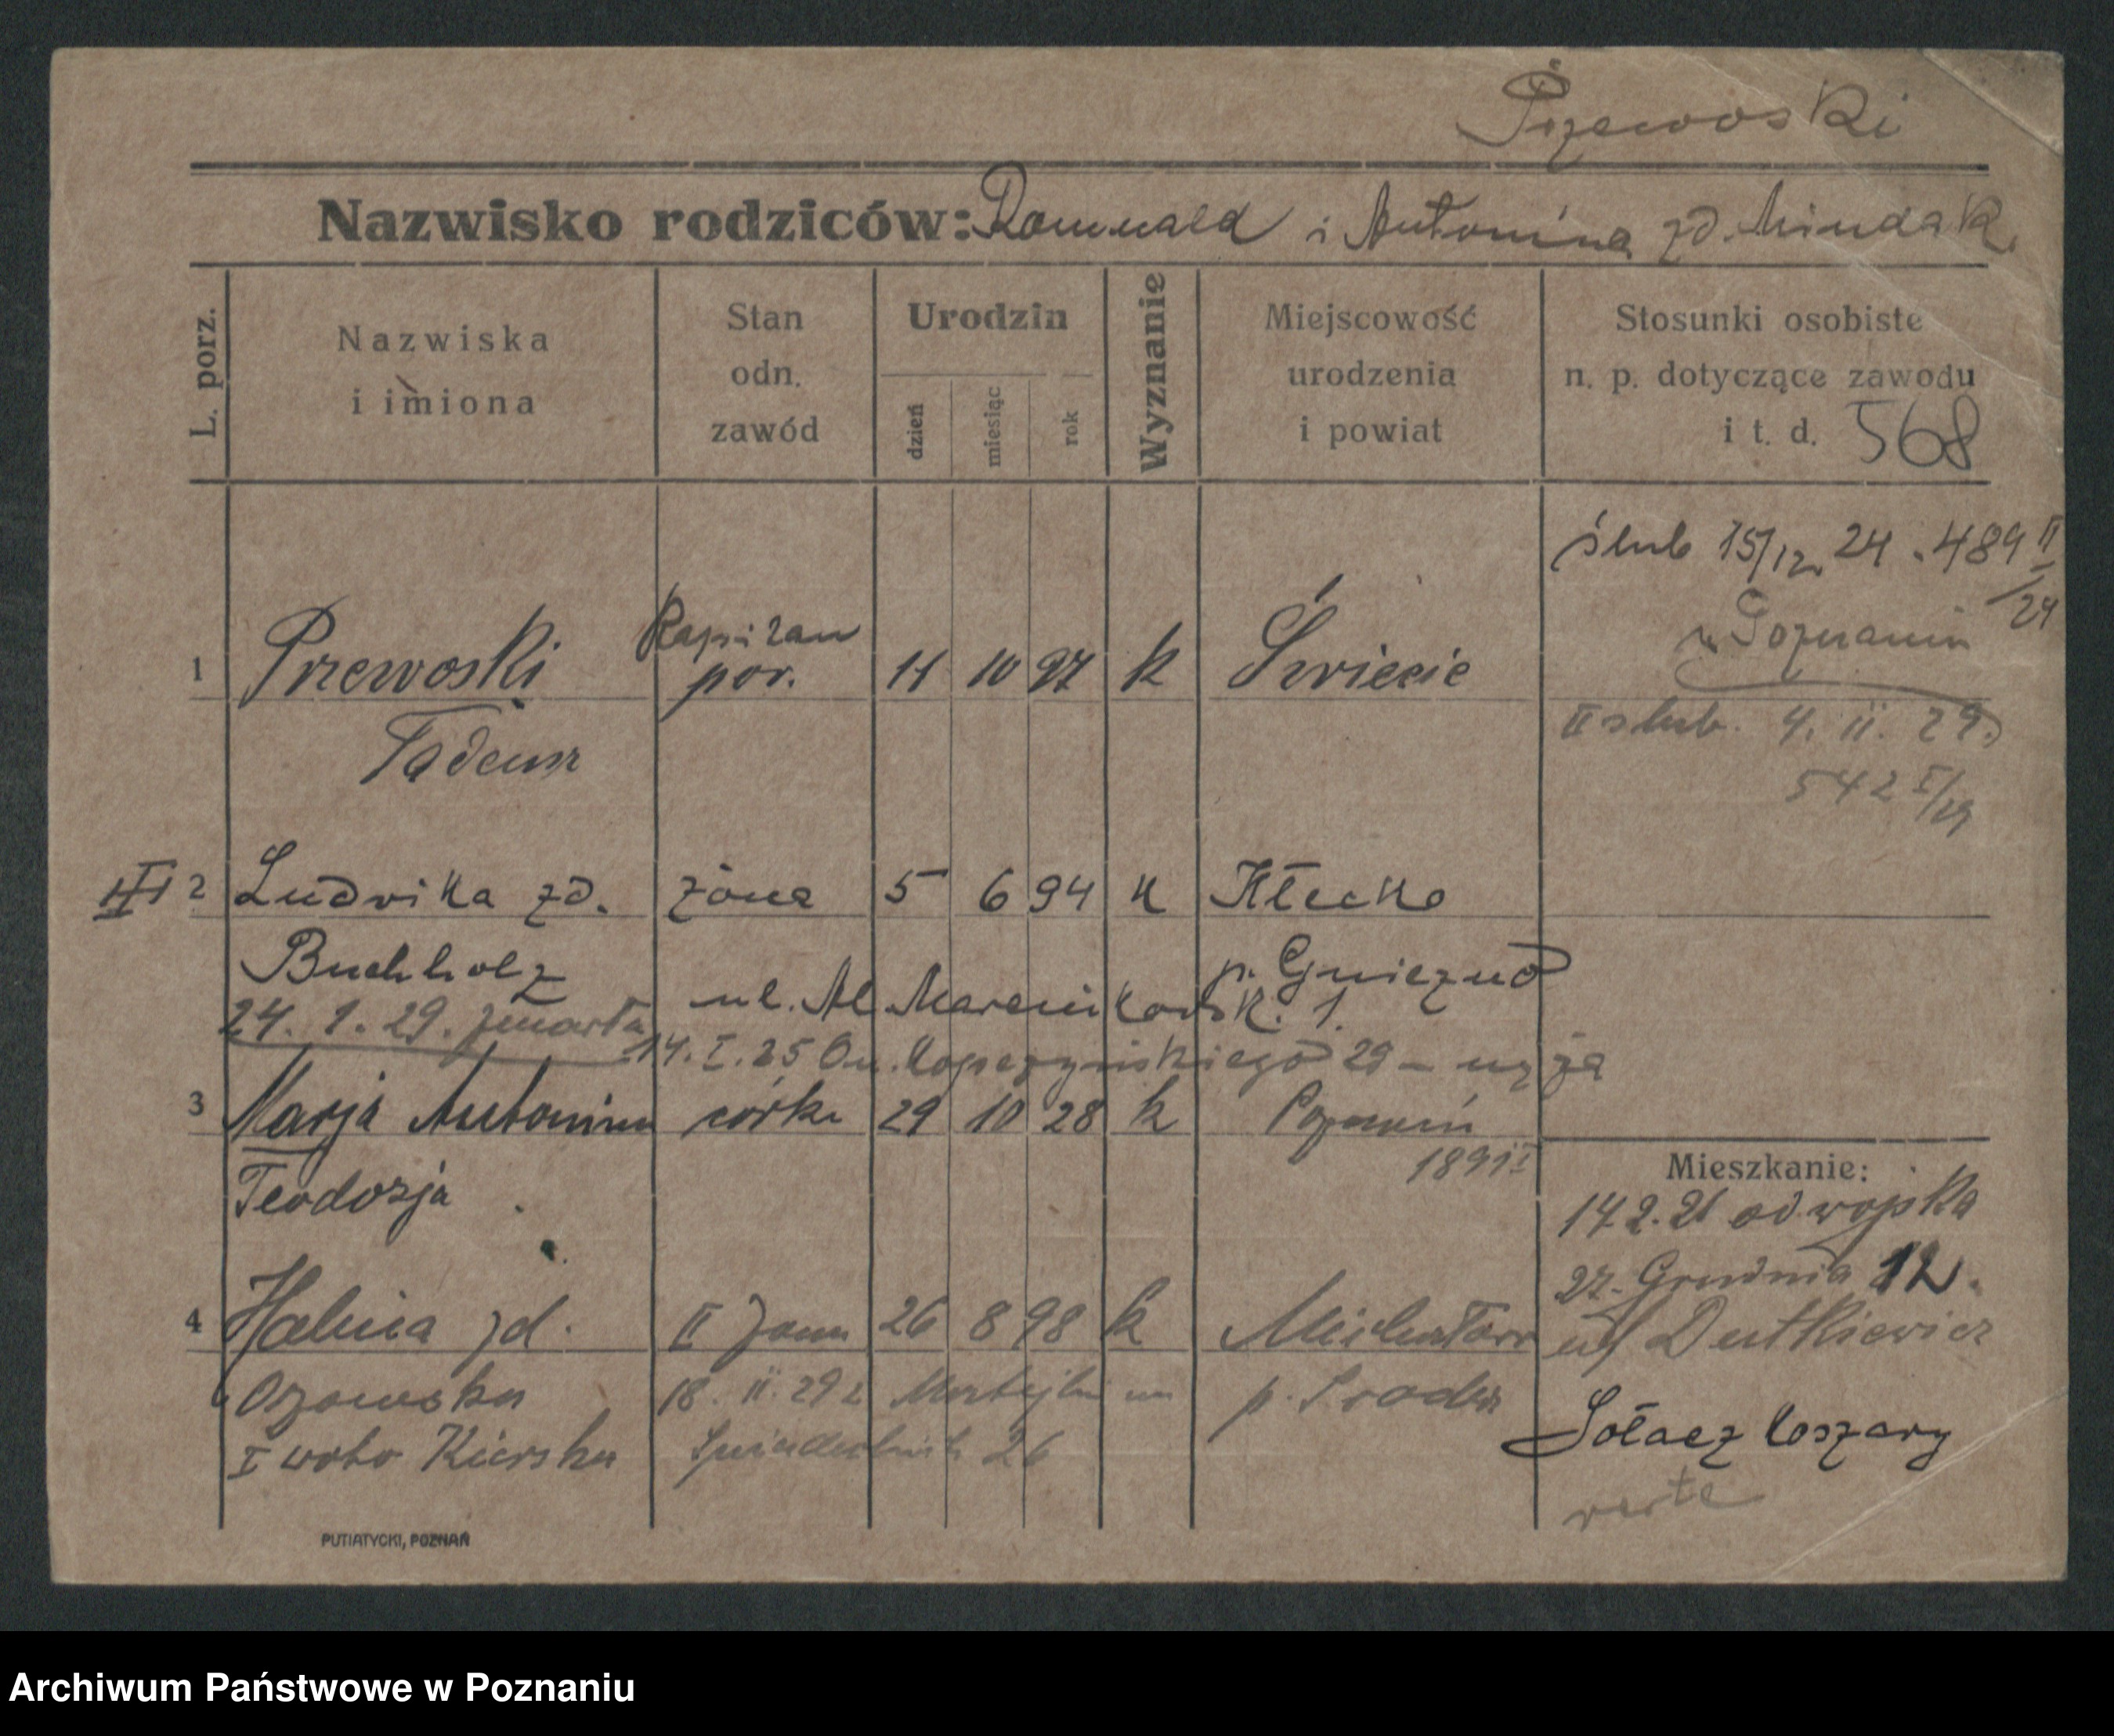 Przewoski
Nazwisko rodziców: Romuald i Antonina zd. Mindak
L. porz.
Nazwiska
i imiona
Stan
odn.
zawód
Urodzin
dzień
miesiąc
rok
Wyznanie
Miejscowość
urodzenia
i powiat
Stosunki osobiste
n. p. dotyczące zawodu
i t. d. 568
ślub 15/12 24. 489 II/24
w Poznaniu
1 Przewoski Kapitan por. 11 10 97 k Świecie
Tadeusz
II ślub. 4. II. 29.
542 I/29
II 2 Ludwika zd. żona 5 6 94 k Kłecko
Buchholz p. Gniezno
ul. Al Marcinkowsk. 1.
24. 1. 29. zmarła
14. I. 25 Kopczyńskiego 29 –
3 Marja Antonina córka 29 10 28 k Poznań
1891
Teodozja
Mieszkanie:
od wojska
27. Grudnia 12.
4 Halina zd. II żona 26 8 98 k
Dutkiewicz
18. II. 29 p. Środa
I voto Kierska 26
Sołacz Koszary
verte
PUTIATYCKI, POZNAŃ
Archiwum Państwowe w Poznaniu